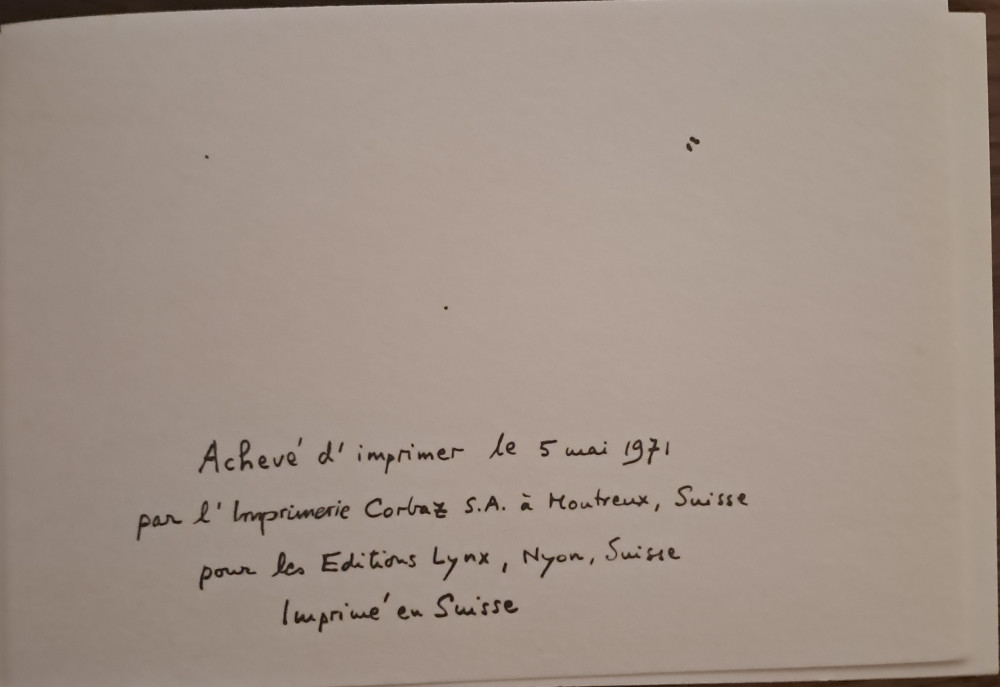 Achevé d'imprimer le 5 mai 1971
par l'Imprimerie Corbaz S.A. à Montreux, Suisse
pour les Editions Lynx, Nyon, Suisse
Imprimé en Suisse